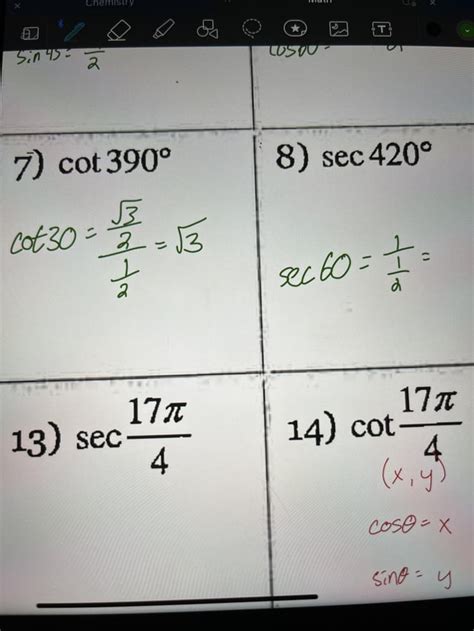 Chemistry
Math
sin 45 = /2
cos60 =
7) cot 390°
cot 30 = (√3/2)/(1/2) = √3
8) sec 420°
sec 60 = 1/(1/2) =
13) sec 17π/4
14) cot 17π/4
(x, y)
cosθ = x
sinθ = y